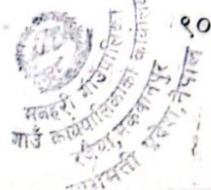 ९०
मनहरी गाउँपालिका
गाउँ कार्यपालिकाको कार्यालय
मकवानपुर
प्रदेश, नेपाल